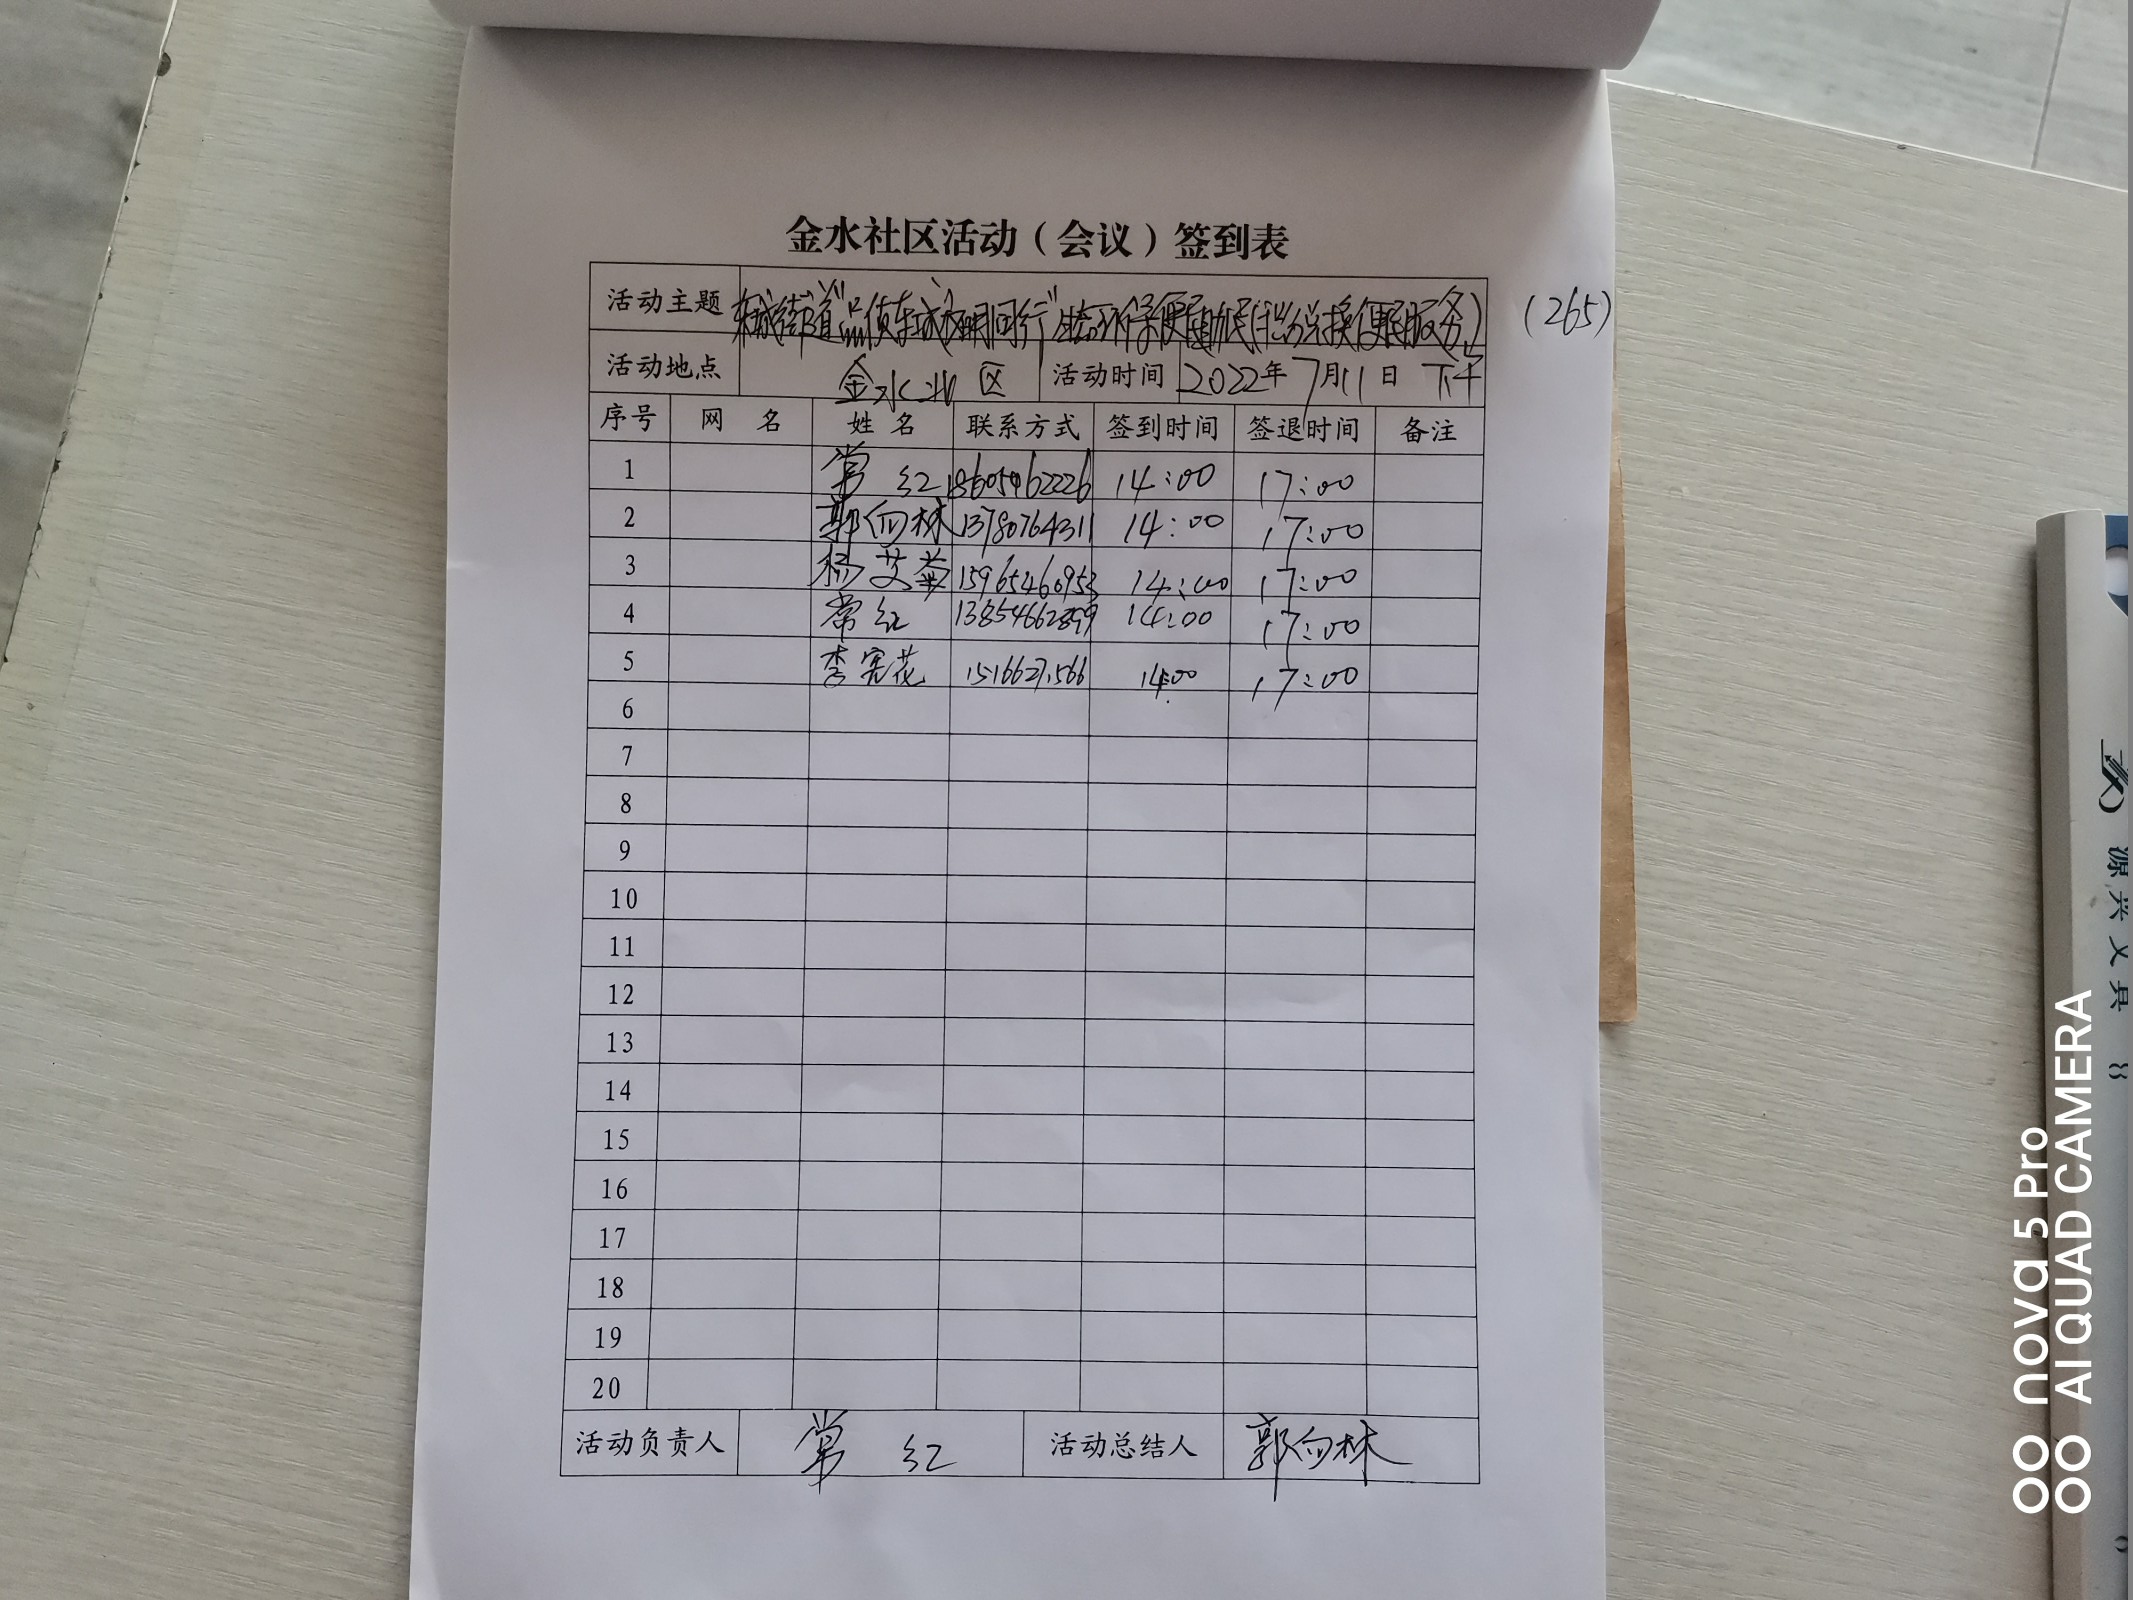 金水社区活动（会议）签到表
活动主题 东城街道"品质东城文明同行"生态环保便民助民(积分兑换便民服务) (265)
活动地点 金水社区 活动时间 2022年7月11日 下午
序号 网 名 姓 名 联系方式 签到时间 签退时间 备注
1 常 红 14:00 17:00
2 郭向林 13780764311 14:00 17:00
3 杨艾益 15965460953 14:00 17:00
4 常红 14:00 17:00
5 李宪花 14:00 17:00
6
7
8
9
10
11
12
13
14
15
16
17
18
19
20
活动负责人 常 红 活动总结人 郭向林
源兴文具
nova 5 Pro
AI QUAD CAMERA